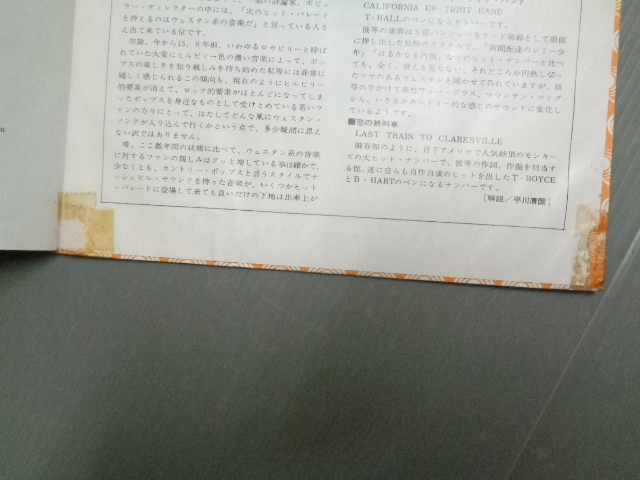 ラー・ディレクターの中には、「次のヒット・パレード
を押えるのはウェスタン系の音楽だ」と言っている人さ
え出て来ている位です。
勿論、今から15、6年前、いわゆるロカビリーと呼ば
れていた大変にヒルビリー色の濃い音楽によって、ポッ
プスの楽しさを知り親しみを持ち始めた私等には非常に
嬉しく感じられるこの傾向も、現在のようにヒルビリー
的要素が消えて、ロック的要素がほとんどになってしま
ったポップスを身近なものとして受けとめている若いフ
ァンの方々にとって、はたしてどんな風にウェスタン・
ソングが入り込んで行くかという点で、多少疑問に思え
ない訳ではありません。
唯、ここ数年間の状態に比べて、ウェスタン系の音楽
に対するファンの親しみはグッと増している事は確かで、
少なくとも、カントリー・ポップスと言うスタイルでナ
ッシュビル・サウンドを持った音楽が、いくつかヒット
・パレードに登場して来ても良いだけの下地は出来上が
CALIFORNIA UP TIGHT BAND
T・HALLのペンになるナンバーです。
彼等の演奏は5弦バンジョーをリード楽器として前面
に押し出した独特のスタイルで、「新聞配達のジミー少
年」「はるかなる
」などのヒット・ナンバーと比べ
ても、全く、衰えを見せない、それどころか円熟し切っ
たツヤのあるウェスタンを聞かせて呉れていますが、彼
等の手がけて来たブルー・グラス、マウンテン・ソング
から、いささかカントリー的な感じのサウンドに変化し
ているようです。
■恋の終列車
LAST TRAIN TO CLARKSVILLE
御存知のように、目下アメリカで人気絶頂のモンキー
ズの大ヒット・ナンバーで、彼等の作詞、作曲を担当す
る他、遂に自らも自作自演のヒットを出したT・BOYCE
とB・HARTのペンになるナンバーです。
[解説／平川清圀]